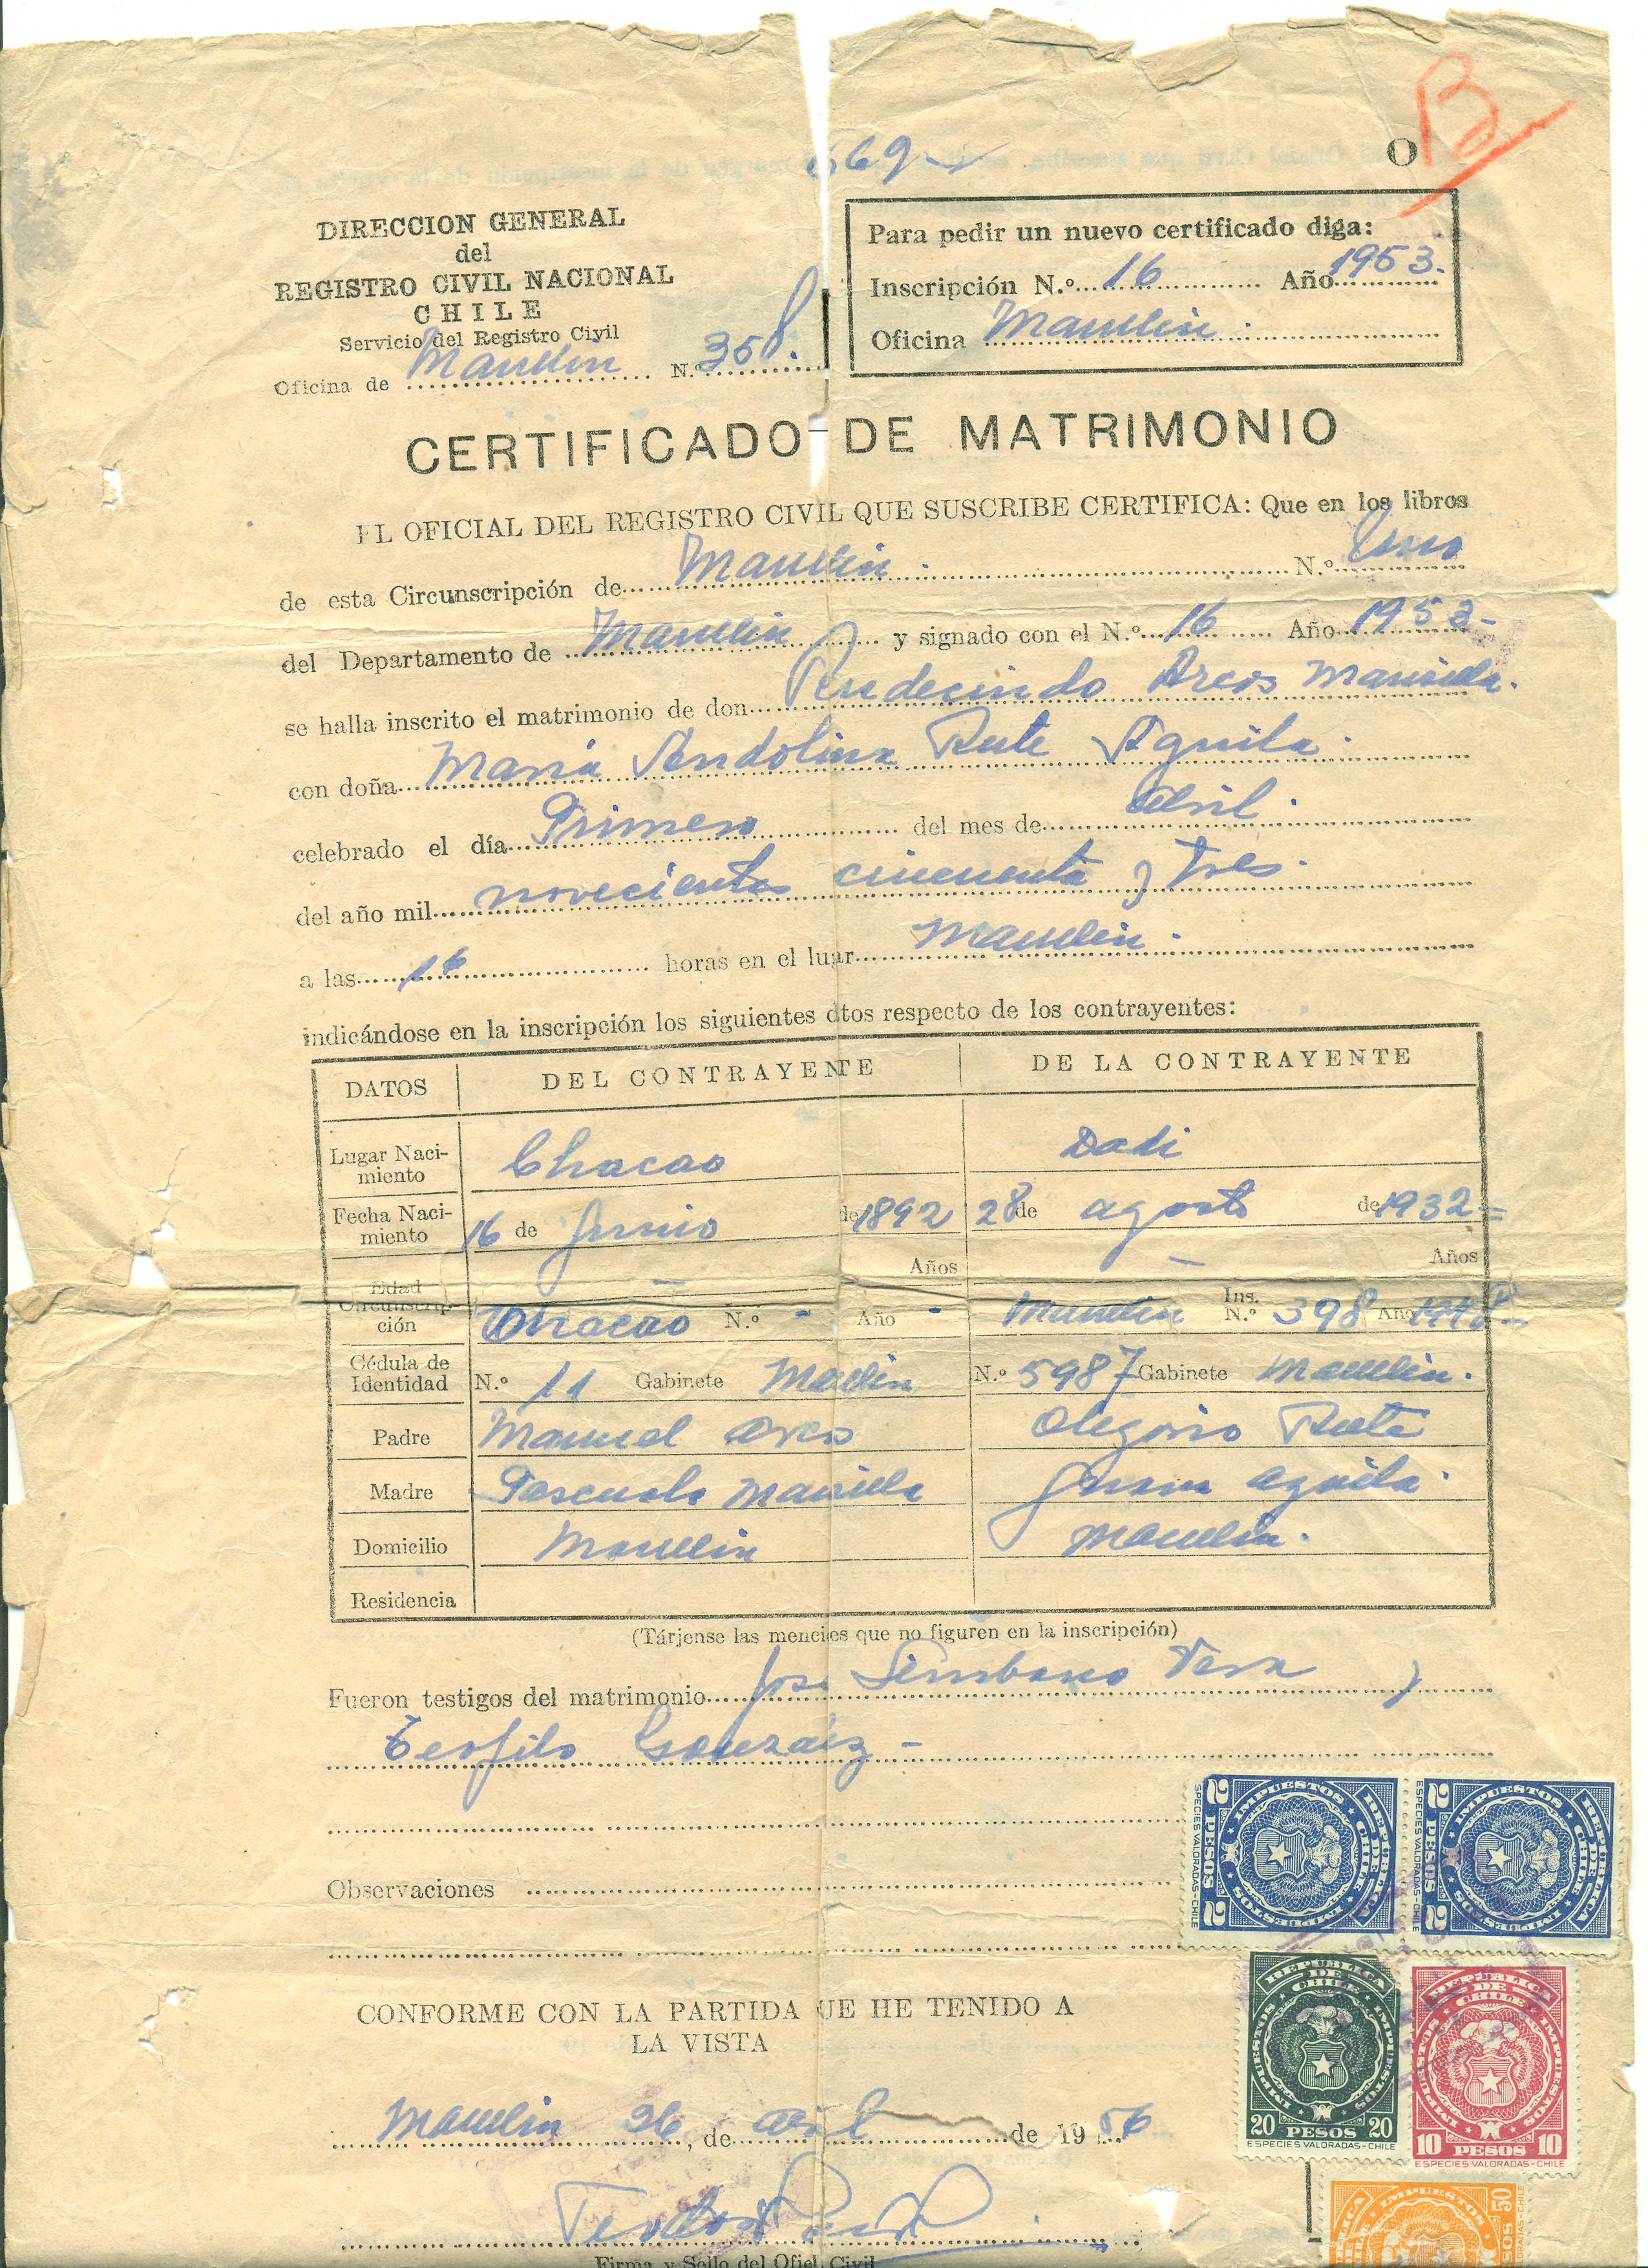 69
O B
DIRECCION GENERAL
del
REGISTRO CIVIL NACIONAL
CHILE
Servicio del Registro Civil
Oficina de Maullin N.º 358.
Para pedir un nuevo certificado diga:
Inscripción N.º 16 Año 1953.
Oficina Maullin.
CERTIFICADO DE MATRIMONIO
EL OFICIAL DEL REGISTRO CIVIL QUE SUSCRIBE CERTIFICA: Que en los libros
de esta Circunscripción de Maullin. N.º Uno
del Departamento de Maullin y signado con el N.º 16 Año 1953-
se halla inscrito el matrimonio de don Rudecindo Arcos Mansilla.
con doña Maria Rute Aguila.
celebrado el día Primero del mes de Abril.
del año mil novecientos cincuenta y tres.
a las 16 horas en el luar Maullin.
indicándose en la inscripción los siguientes dtos respecto de los contrayentes:
DATOS DEL CONTRAYENTE DE LA CONTRAYENTE
Lugar Naci-
miento Chacao Dadi
Fecha Naci-
miento 16 de Junio de 1892 28 de agosto de 1932=
Edad — Años — Años
Circunscrip-
ción Chacao N.º - Año - Maullin Ins. N.º 398 Año 1948
Cédula de
Identidad N.º 11 Gabinete Maullin N.º 5987 Gabinete Maullin.
Padre Manuel Arcos Olegario Rute
Madre Pascuala Mansilla Juana Aguila.
Domicilio Maullin Maullin.
Residencia
(Tárjense las menciies que no figuren en la inscripción)
Fueron testigos del matrimonio José Vera y
Teofilo González -
Observaciones
CONFORME CON LA PARTIDA UE HE TENIDO A
LA VISTA
Maullin 26, de abril de 1956
Firma y Sello del Ofiel. Civil
REPUBLICA DE CHILE IMPUESTOS IMPUESTOS
2 PESOS 2
ESPECIES VALORADAS-CHILE
REPUBLICA DE CHILE IMPUESTOS IMPUESTOS
2 PESOS 2
ESPECIES VALORADAS-CHILE
REPUBLICA DE CHILE IMPUESTOS IMPUESTOS
20 PESOS 20
ESPECIES VALORADAS-CHILE
REPUBLICA DE CHILE IMPUESTOS IMPUESTOS
10 PESOS 10
ESPECIES VALORADAS-CHILE
IMPUESTOS
50